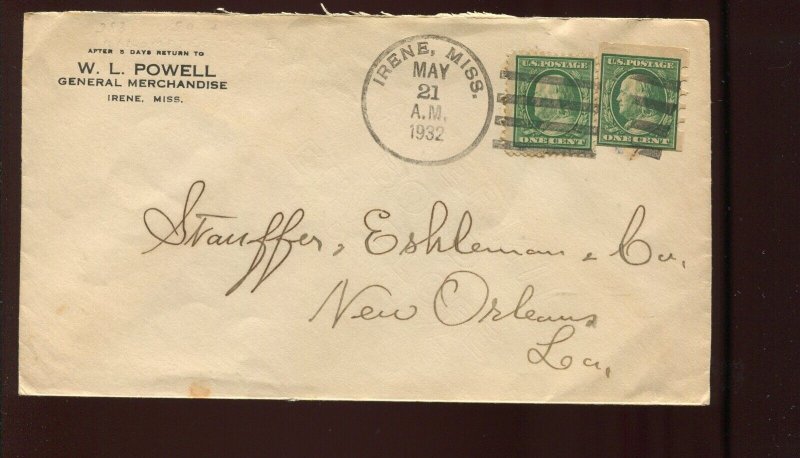 AFTER 5 DAYS RETURN TO
W. L. POWELL
GENERAL MERCHANDISE
IRENE, MISS.
IRENE, MISS.
MAY
21
A.M.
1932
U.S. POSTAGE
ONE CENT
U.S. POSTAGE
ONE CENT
Stauffer, Eshleman & Co.
New Orleans
La.